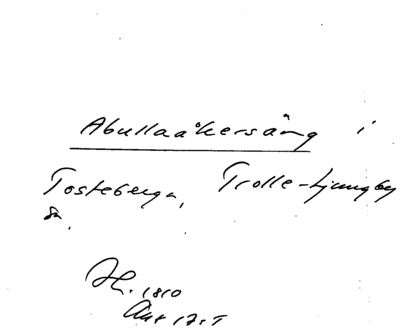 Abullaåkersäng i
Tosteberga, Trolle-Ljungby
sn.
1810